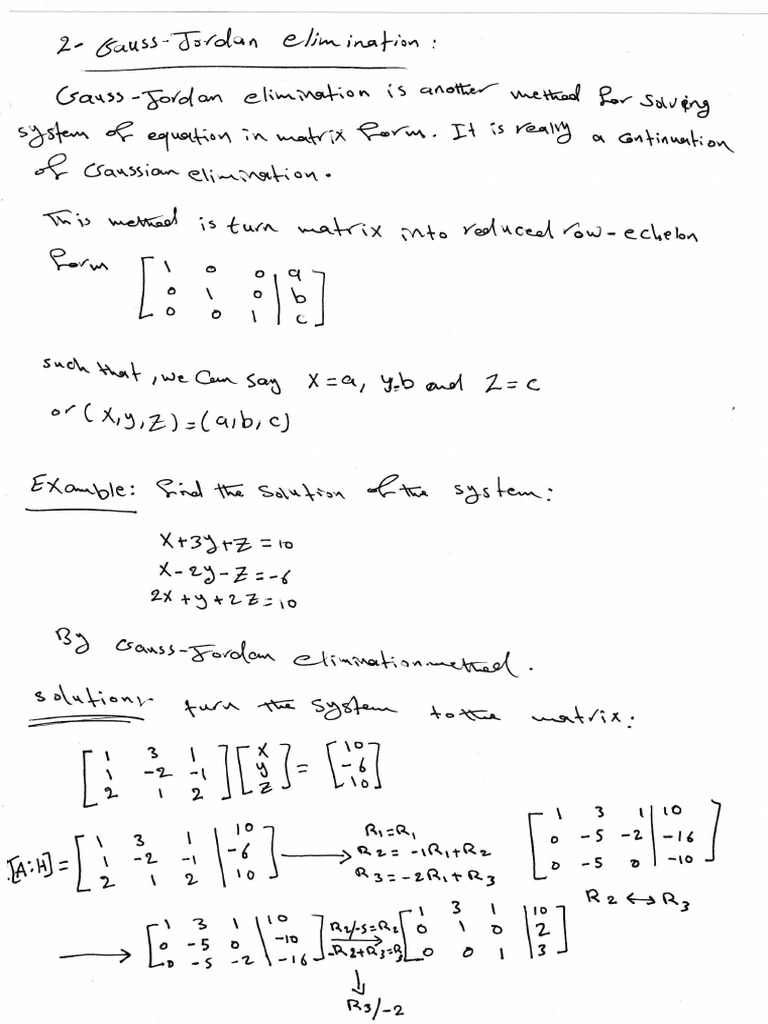 2- Gauss-Jordan elimination:
Gauss-Jordan elimination is another method for solving
system of equation in matrix form. It is really a continuation
of Gaussian elimination.
This method is turn matrix into reduced row-echelon
form [1 0 0 | a
0 1 0 | b
0 0 1 | c]
such that, we can say X=a, y=b and Z=c
or (X,y,Z)=(a,b,c)
Examble: find the solution of the system:
X+3y+Z=10
X-2y-Z=-6
2X+y+2Z=10
By Gauss-Jordan elimination method.
solution:- turn the system to the matrix:
[1 3 1
1 -2 -1
2 1 2] [X
y
Z] = [10
-6
10]
[A:H] = [1 3 1 | 10
1 -2 -1 | -6
2 1 2 | 10] → R1=R1
R2=-1R1+R2
R3=-2R1+R3
[1 3 1 | 10
0 -5 -2 | -16
0 -5 0 | -10]
R2 ↔ R3
→ [1 3 1 | 10
0 -5 0 | -10
0 -5 -2 | -16] R2/-5=R2
-R2+R3=R3
→ [1 3 1 | 10
0 1 0 | 2
0 0 1 | 3]
↓
R3/-2